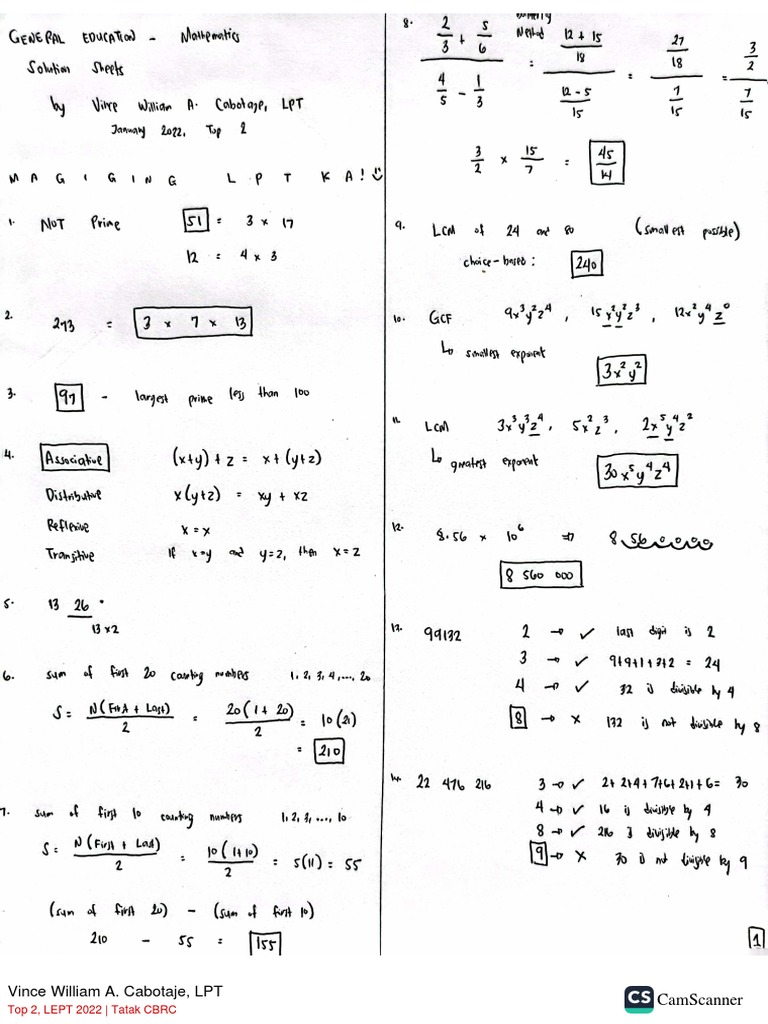 GENERAL EDUCATION - Mathematics
Solution Sheets
by Vince William A. Cabotaje, LPT
January 2022, Top 2
MAGIGING LPT KA!
1. NOT Prime 51 = 3 x 17
12 = 4 x 3
2. 273 = 3 x 7 x 13
3. 97 - largest prime less than 100
4. Associative (x+y) + z = x + (y+z)
Distributive x(y+z) = xy + xz
Reflexive x = x
Transitive if x=y and y=z, then x=z
5. 13 26
13 x 2
6. sum of first 20 counting numbers 1, 2, 3, 4, ..., 20
S = N(First + Last) / 2 = 20(1 + 20) / 2 = 10(21)
= 210
7. sum of first 10 counting numbers 1, 2, 3, ..., 10
S = N(First + Last) / 2 = 10(1+10) / 2 = 5(11) = 55
(sum of first 20) - (sum of first 10)
210 - 55 = 155
8. 2/3 + 5/6 / 4/5 - 1/3 = Method 12 + 15 / 18 / 12 - 5 / 15 = 27/18 / 7/15 = 3/2 / 7/15
3/2 x 15/7 = 45/14
9. LCM of 24 and 80 (smallest possible)
choice-based: 240
10. GCF 9x³y²z⁴, 15x²y²z³, 12x²y⁴z⁰
↳ smallest exponent
3x²y²
11. LCM 3x³y³z⁴, 5x²z³, 2x⁵y⁴z²
↳ greatest exponent
30x⁵y⁴z⁴
12. 8.56 x 10⁶ => 8.56
8 560 000
13. 99132 2 → ✓ last digit is 2
3 → ✓ 9+9+1+3+2 = 24
4 → ✓ 32 is divisible by 4
8 → x 132 is not divisible by 8
14. 22 476 216 3 → ✓ 2+2+4+7+6+2+1+6 = 30
4 → ✓ 16 is divisible by 4
8 → ✓ 216 is divisible by 8
9 → x 30 is not divisible by 9
1
Vince William A. Cabotaje, LPT
Top 2, LEPT 2022 | Tatak CBRC
CS CamScanner